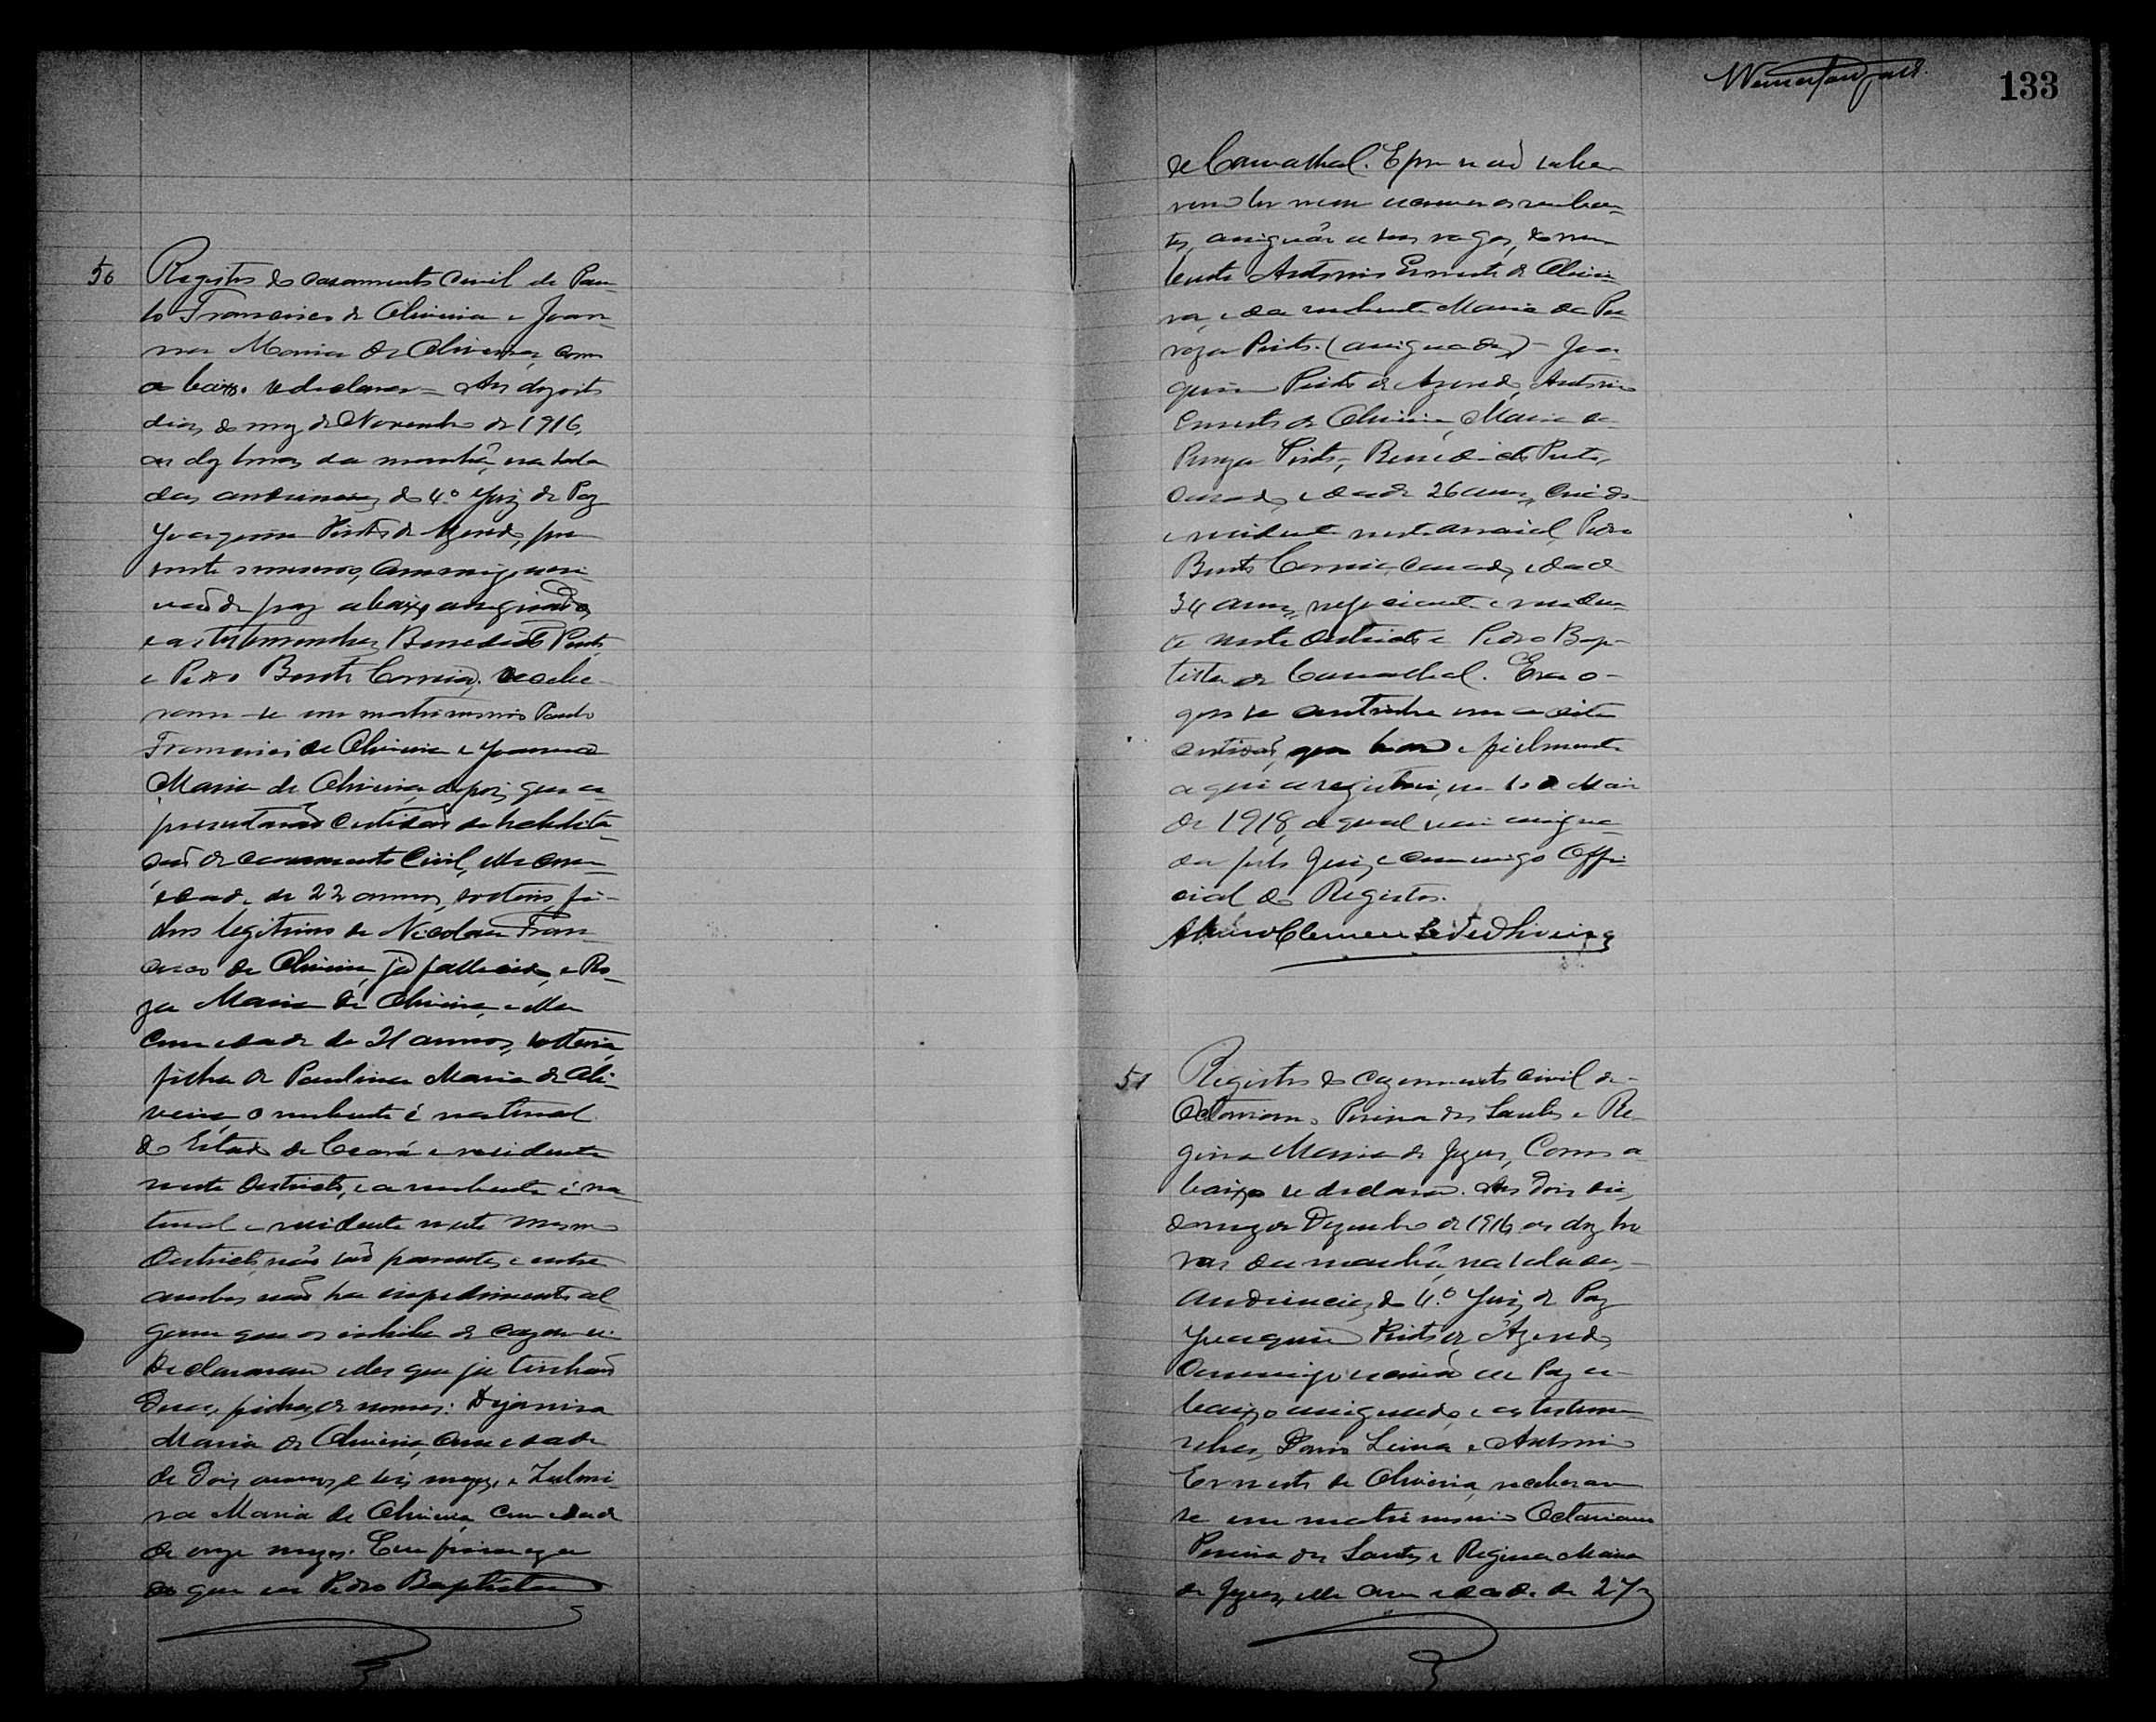 50 Registro do casamento civil de Pau-
lo Francisco de Oliveira e Joan-
na Maria de Oliveira, como
a baixo se declara = Aos dezoito
dias do mez de Novembro de 1916,
as dez horas da manhã, na sala
das audiencias do 4º Juiz de Paz
Joaquim Pinto de Azevedo, pre-
sente o mesmo, commigo escri-
vão de paz abaixo assignado,
e as testemunhas Benedicto Pinto,
e Pedro Bento Correia, recebe-
ram-se em matrimonio Paulo
Francisco de Oliveira e Joanna
Maria de Oliveira, depois que a-
presentarão certidão de habilita-
ção de casamento civil, elle com
idade de 22 annos, solteiro, fi-
lho legitimo de Nicolau Fran-
cisco de Oliveira, já fallecido, e Ro-
za Maria de Oliveira, e ella
com idade de 21 annos, solteira,
filha de Paulina Maria de Oli-
veira, o nubente é natural
do Estado do Ceará e residente
neste Districto, e a nubente é na-
tural e residente neste mesmo
Districto, não são parentes e entre
ambos não ha impedimento al-
gum que os inhiba de cazar-se.
Declararam elles que já tinhão
duas filhas, de nomes: Dejanira
Maria de Oliveira, com idade
de dois annos e seis mezes, e Zulmi-
ra Maria de Oliveira, com idade
de onze mezes. Em firmeza
do que eu Pedro Baptista
133
de Carvalhal. E por não sabe-
rem ler nem escrever os nuben-
tes, assignão a seus rogos, do nu-
bente Antonio Ernesto de Olivei-
ra, e da nubente Maria da Pu-
reza Pinto. (assignados) - Joa-
quim Pinto de Azevedo, Antonio
Ernesto de Oliveira, Maria da
Pureza Pinto, Benedicto Pinto,
casado, idade 26 annos,
e residente neste arraial, Pedro
Bento Correia, casado, idade
34 annos, negociante e residen-
te neste Districto e Pedro Bap-
tista de Carvalhal. Era o
que se continha em a dita
certidão, que bem e fielmente
aqui a registrei, Maio
de 1918, a qual vai assigna-
da pelo Juiz e commigo Offi-
cial do Registro.
51 Registro do cazamento civil de
Octaviano Pereira dos Santos e Re-
gina Maria de Jezus, Como a
baixo se declara. Aos dois dias
do mez de Dezembro de 1916 as dez ho-
ras da manhã, na sala das
audiencias do 4º Juiz de Paz
Joaquim Pinto de Azevedo,
commigo escrivão de Paz a-
baixo assignado, e as testemu-
nhas, Lima e Antonio
Ernesto de Oliveira, receberam-
se em matrimonio Octaviano
Pereira dos Santos e Regina Maria
de Jezus, elle com idade de 27